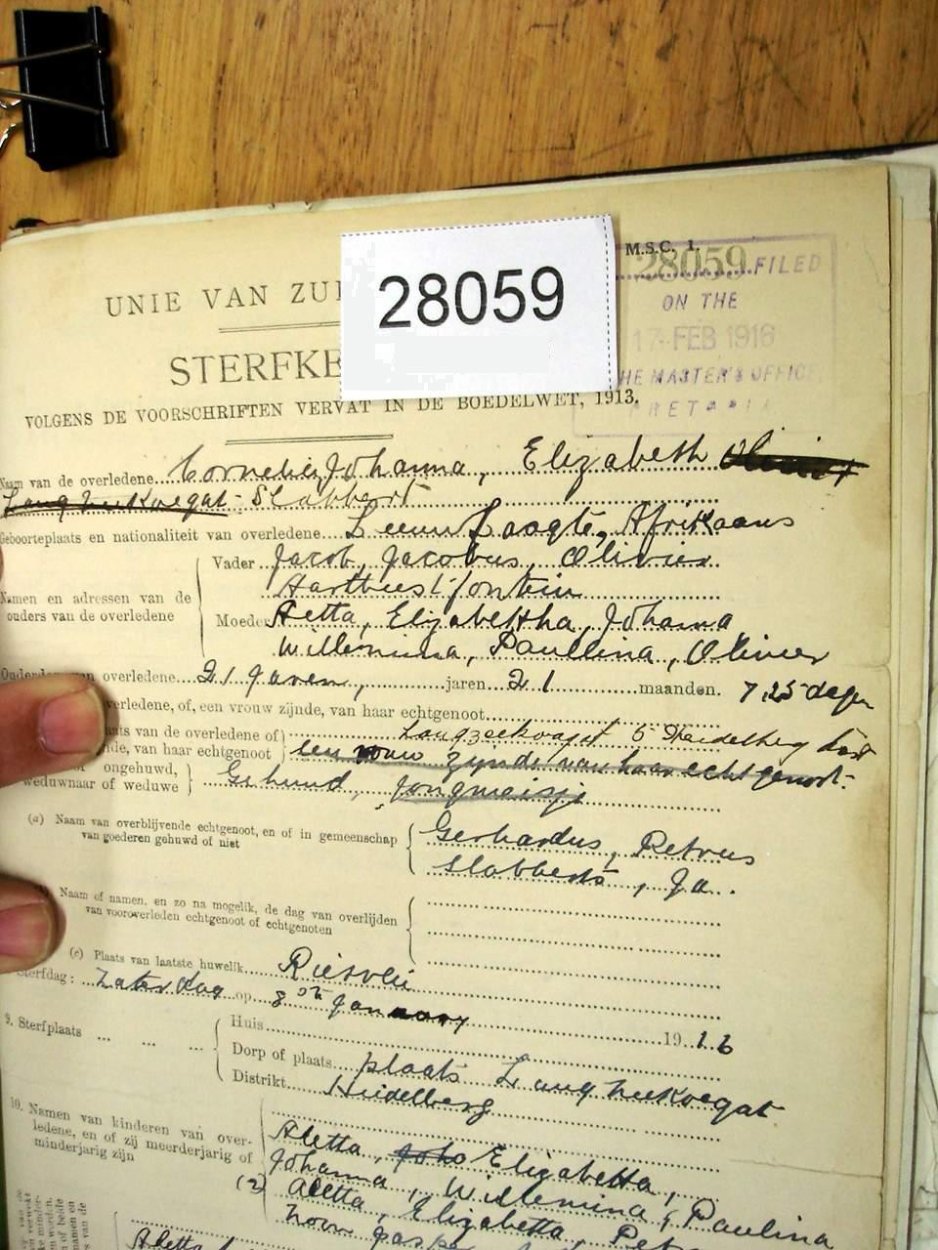 28059
M.S.C. 1.
28059 FILED
ON THE
17 FEB 1916
THE MASTER'S OFFICE
PRETORIA
UNIE VAN ZUI
STERFKE
VOLGENS DE VOORSCHRIFTEN VERVAT IN DE BOEDELWET, 1913.
Naam van de overledene Cornelia, Johanna, Elizabeth Olivier
Langzeekoegat - Slabbert
Geboorteplaats en nationaliteit van overledene Leeuw Laagte, Afrikaans
Vader Jacob, Jacobus, Olivier
Hartbeestfontein
Namen en adressen van de
ouders van de overledene
Moeder Aletta, Elizabettha, Johanna
Willemina, Paullina, Olivier
Ouderdom van overledene 21 Jaren, jaren 21 maanden. 7, 25 dagen
overledene, of, een vrouw zijnde, van haar echtgenoot
plaats van de overledene of Langzeekoegat 5 Heidelberg
zijnde, van haar echtgenoot een vrouw zijnde van haar echtgenoot.
ongehuwd,
weduwnaar of weduwe Gehuud, Jongmeisje
(a) Naam van overblijvende echtgenoot, en of in gemeenschap
van goederen gehuwd of niet
Gerhardus, Petrus
Slabberts, Ja.
Naam of namen, en zo na mogelik, de dag van overlijden
van vooroverleden echtgenoot of echtgenoten
(c) Plaats van laatste huwelik Rietvlei
Sterfdag: Zaterdag op 8ste January 1916
9. Sterfplaats ... ... ...
Huis
Dorp of plaats plaats Langzeekoegat
Distrikt Heidelberg
10. Namen van kinderen van over-
ledene, en of zij meerderjarig of
minderjarig zijn
Aletta, Joha Elizabetta,
Johanna, Willemina, Paulina
(2) Aletta, Elizabetta,
Aletta